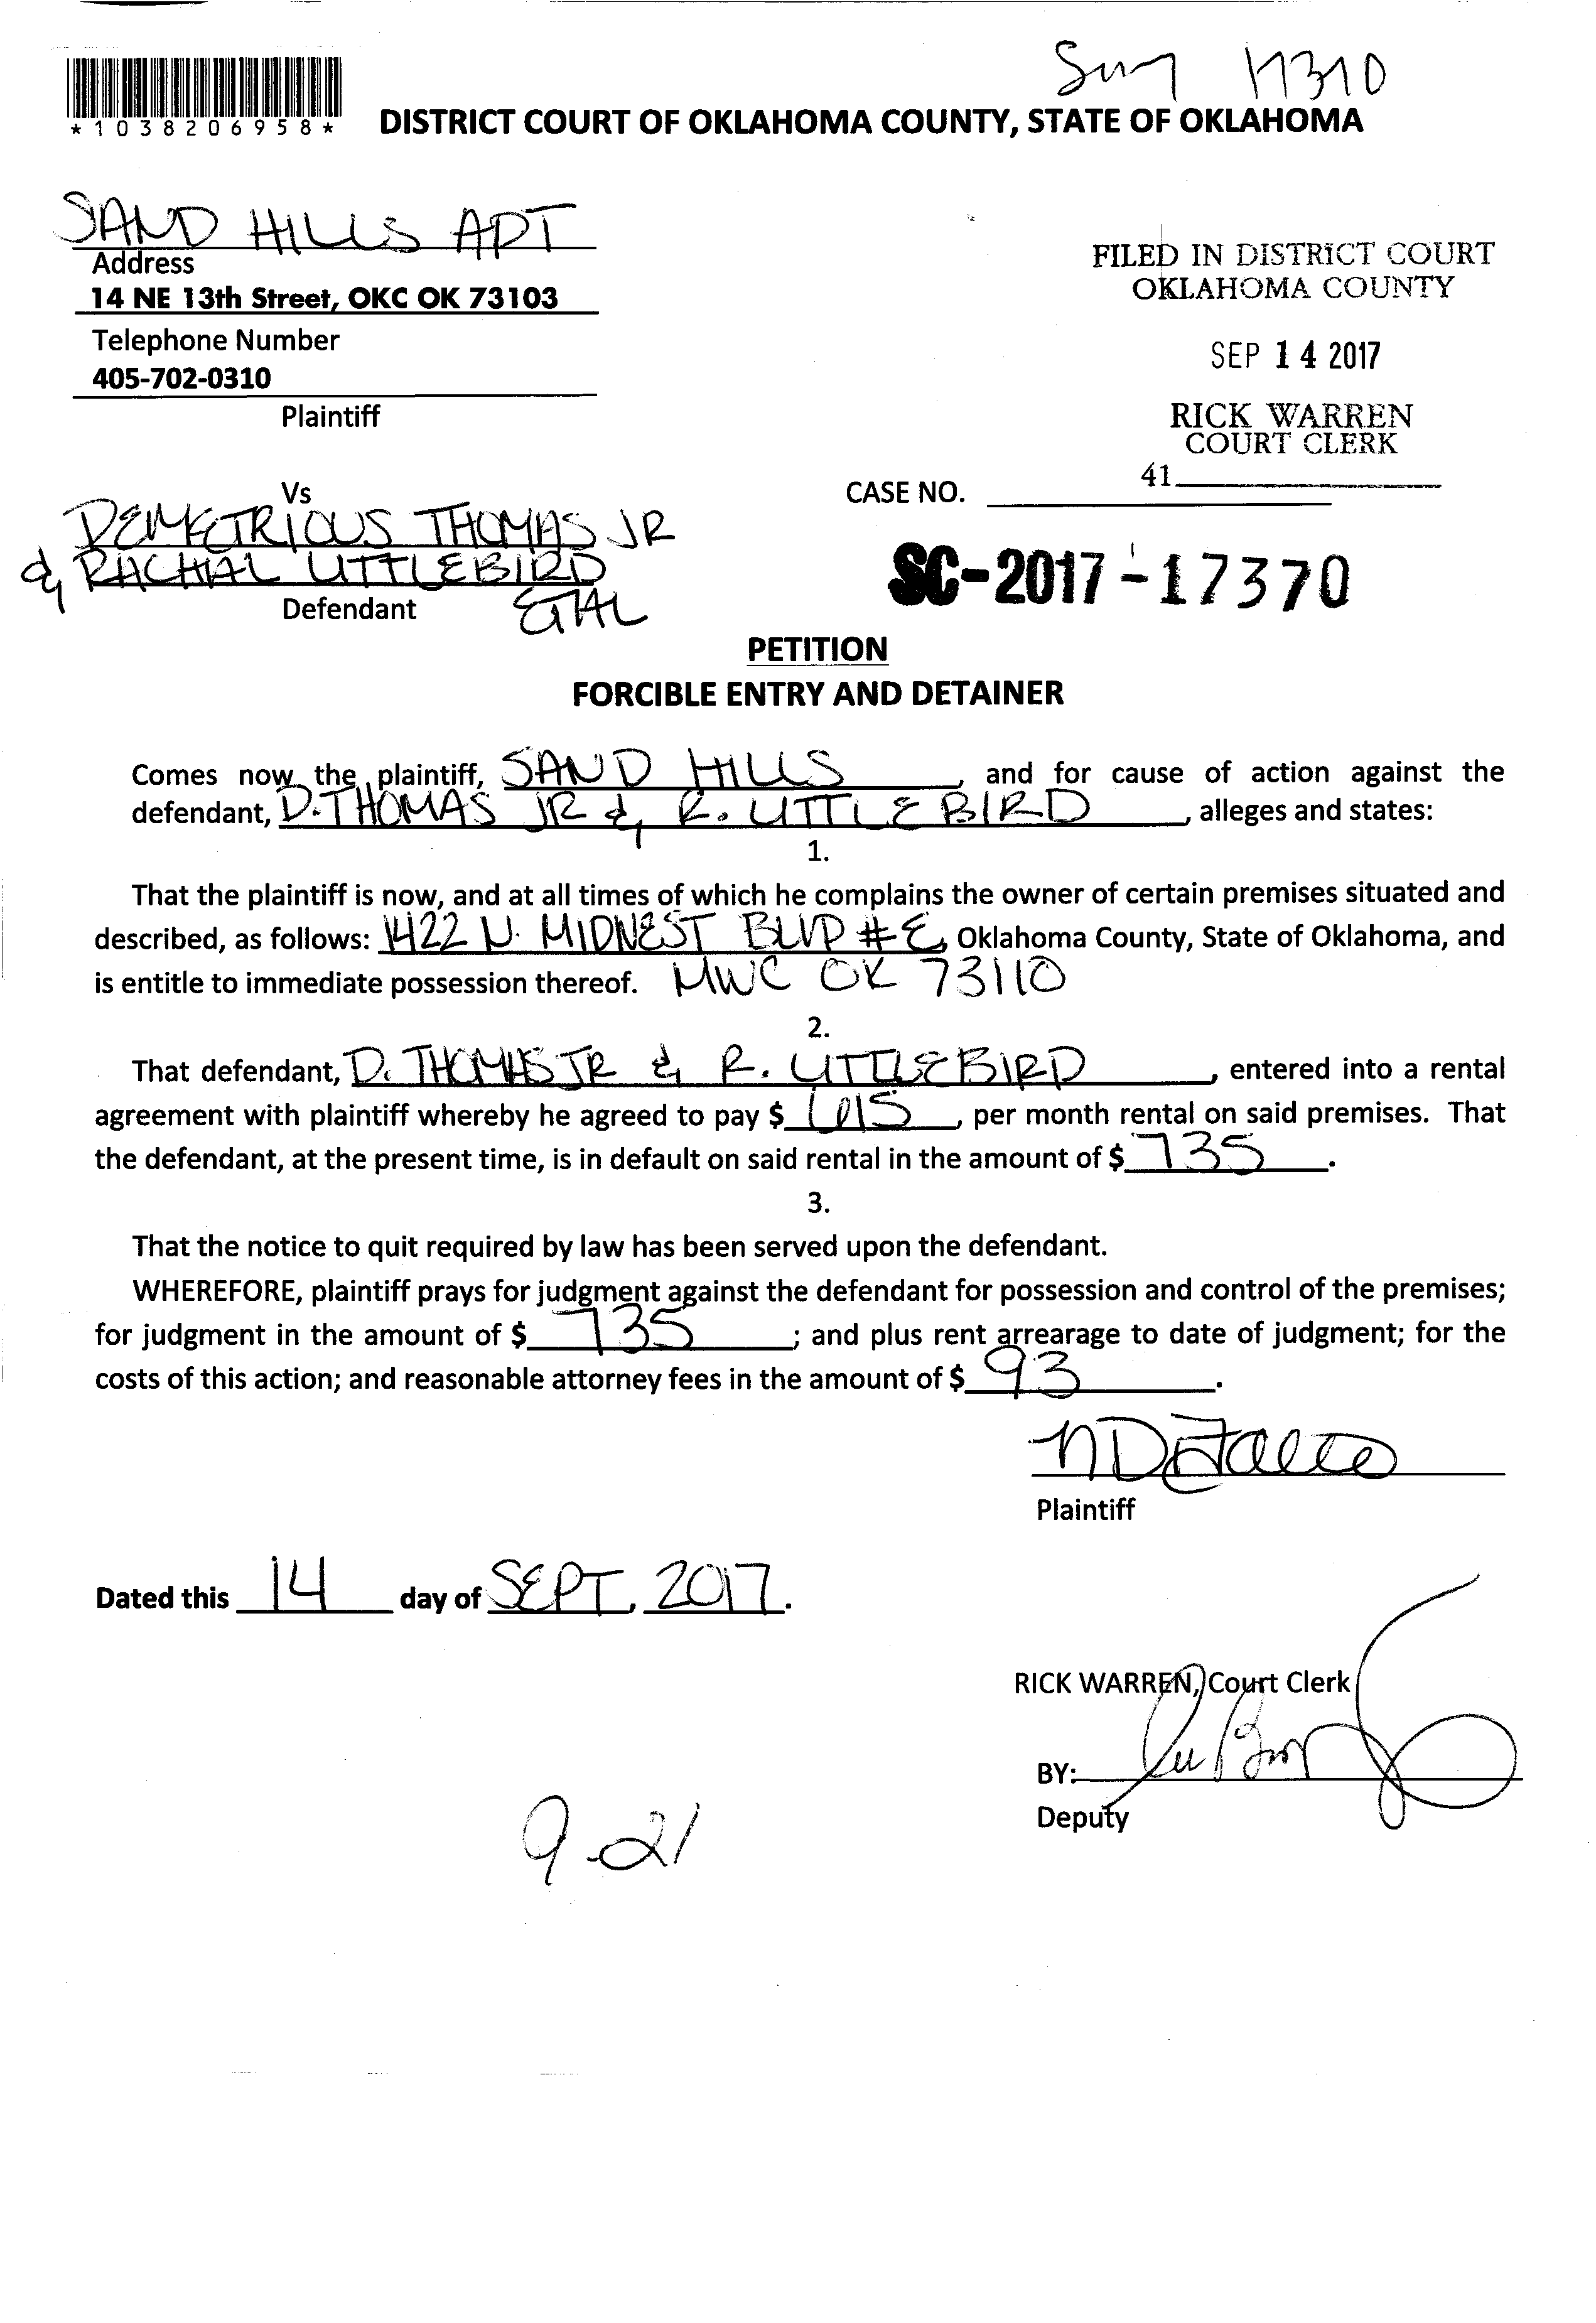 17310
*1038206958*
DISTRICT COURT OF OKLAHOMA COUNTY, STATE OF OKLAHOMA
SAND HILLS APT
Address
14 NE 13th Street, OKC OK 73103
Telephone Number
405-702-0310
Plaintiff
FILED IN DISTRICT COURT
OKLAHOMA COUNTY
SEP 14 2017
RICK WARREN
COURT CLERK
41
Vs
CASE NO.
DEMETRIOUS THOMAS JR
& RACHIAL LITTLEBIRD
ETAL
Defendant
SC-2017-17370
PETITION
FORCIBLE ENTRY AND DETAINER
Comes now the plaintiff, SAND HILLS, and for cause of action against the
defendant, D. THOMAS JR & R. LITTLEBIRD, alleges and states:
1.
That the plaintiff is now, and at all times of which he complains the owner of certain premises situated and
described, as follows: 1422 N. MIDWEST BLVD #E, Oklahoma County, State of Oklahoma, and
is entitle to immediate possession thereof. MWC OK 73110
2.
That defendant, D. THOMAS JR & R. LITTLEBIRD, entered into a rental
agreement with plaintiff whereby he agreed to pay $ 615, per month rental on said premises. That
the defendant, at the present time, is in default on said rental in the amount of $ 735.
3.
That the notice to quit required by law has been served upon the defendant.
WHEREFORE, plaintiff prays for judgment against the defendant for possession and control of the premises;
for judgment in the amount of $ 735; and plus rent arrearage to date of judgment; for the
costs of this action; and reasonable attorney fees in the amount of $ 93.
Plaintiff
Dated this 14 day of SEPT, 2017.
RICK WARREN, Court Clerk
BY:
Deputy
9-21